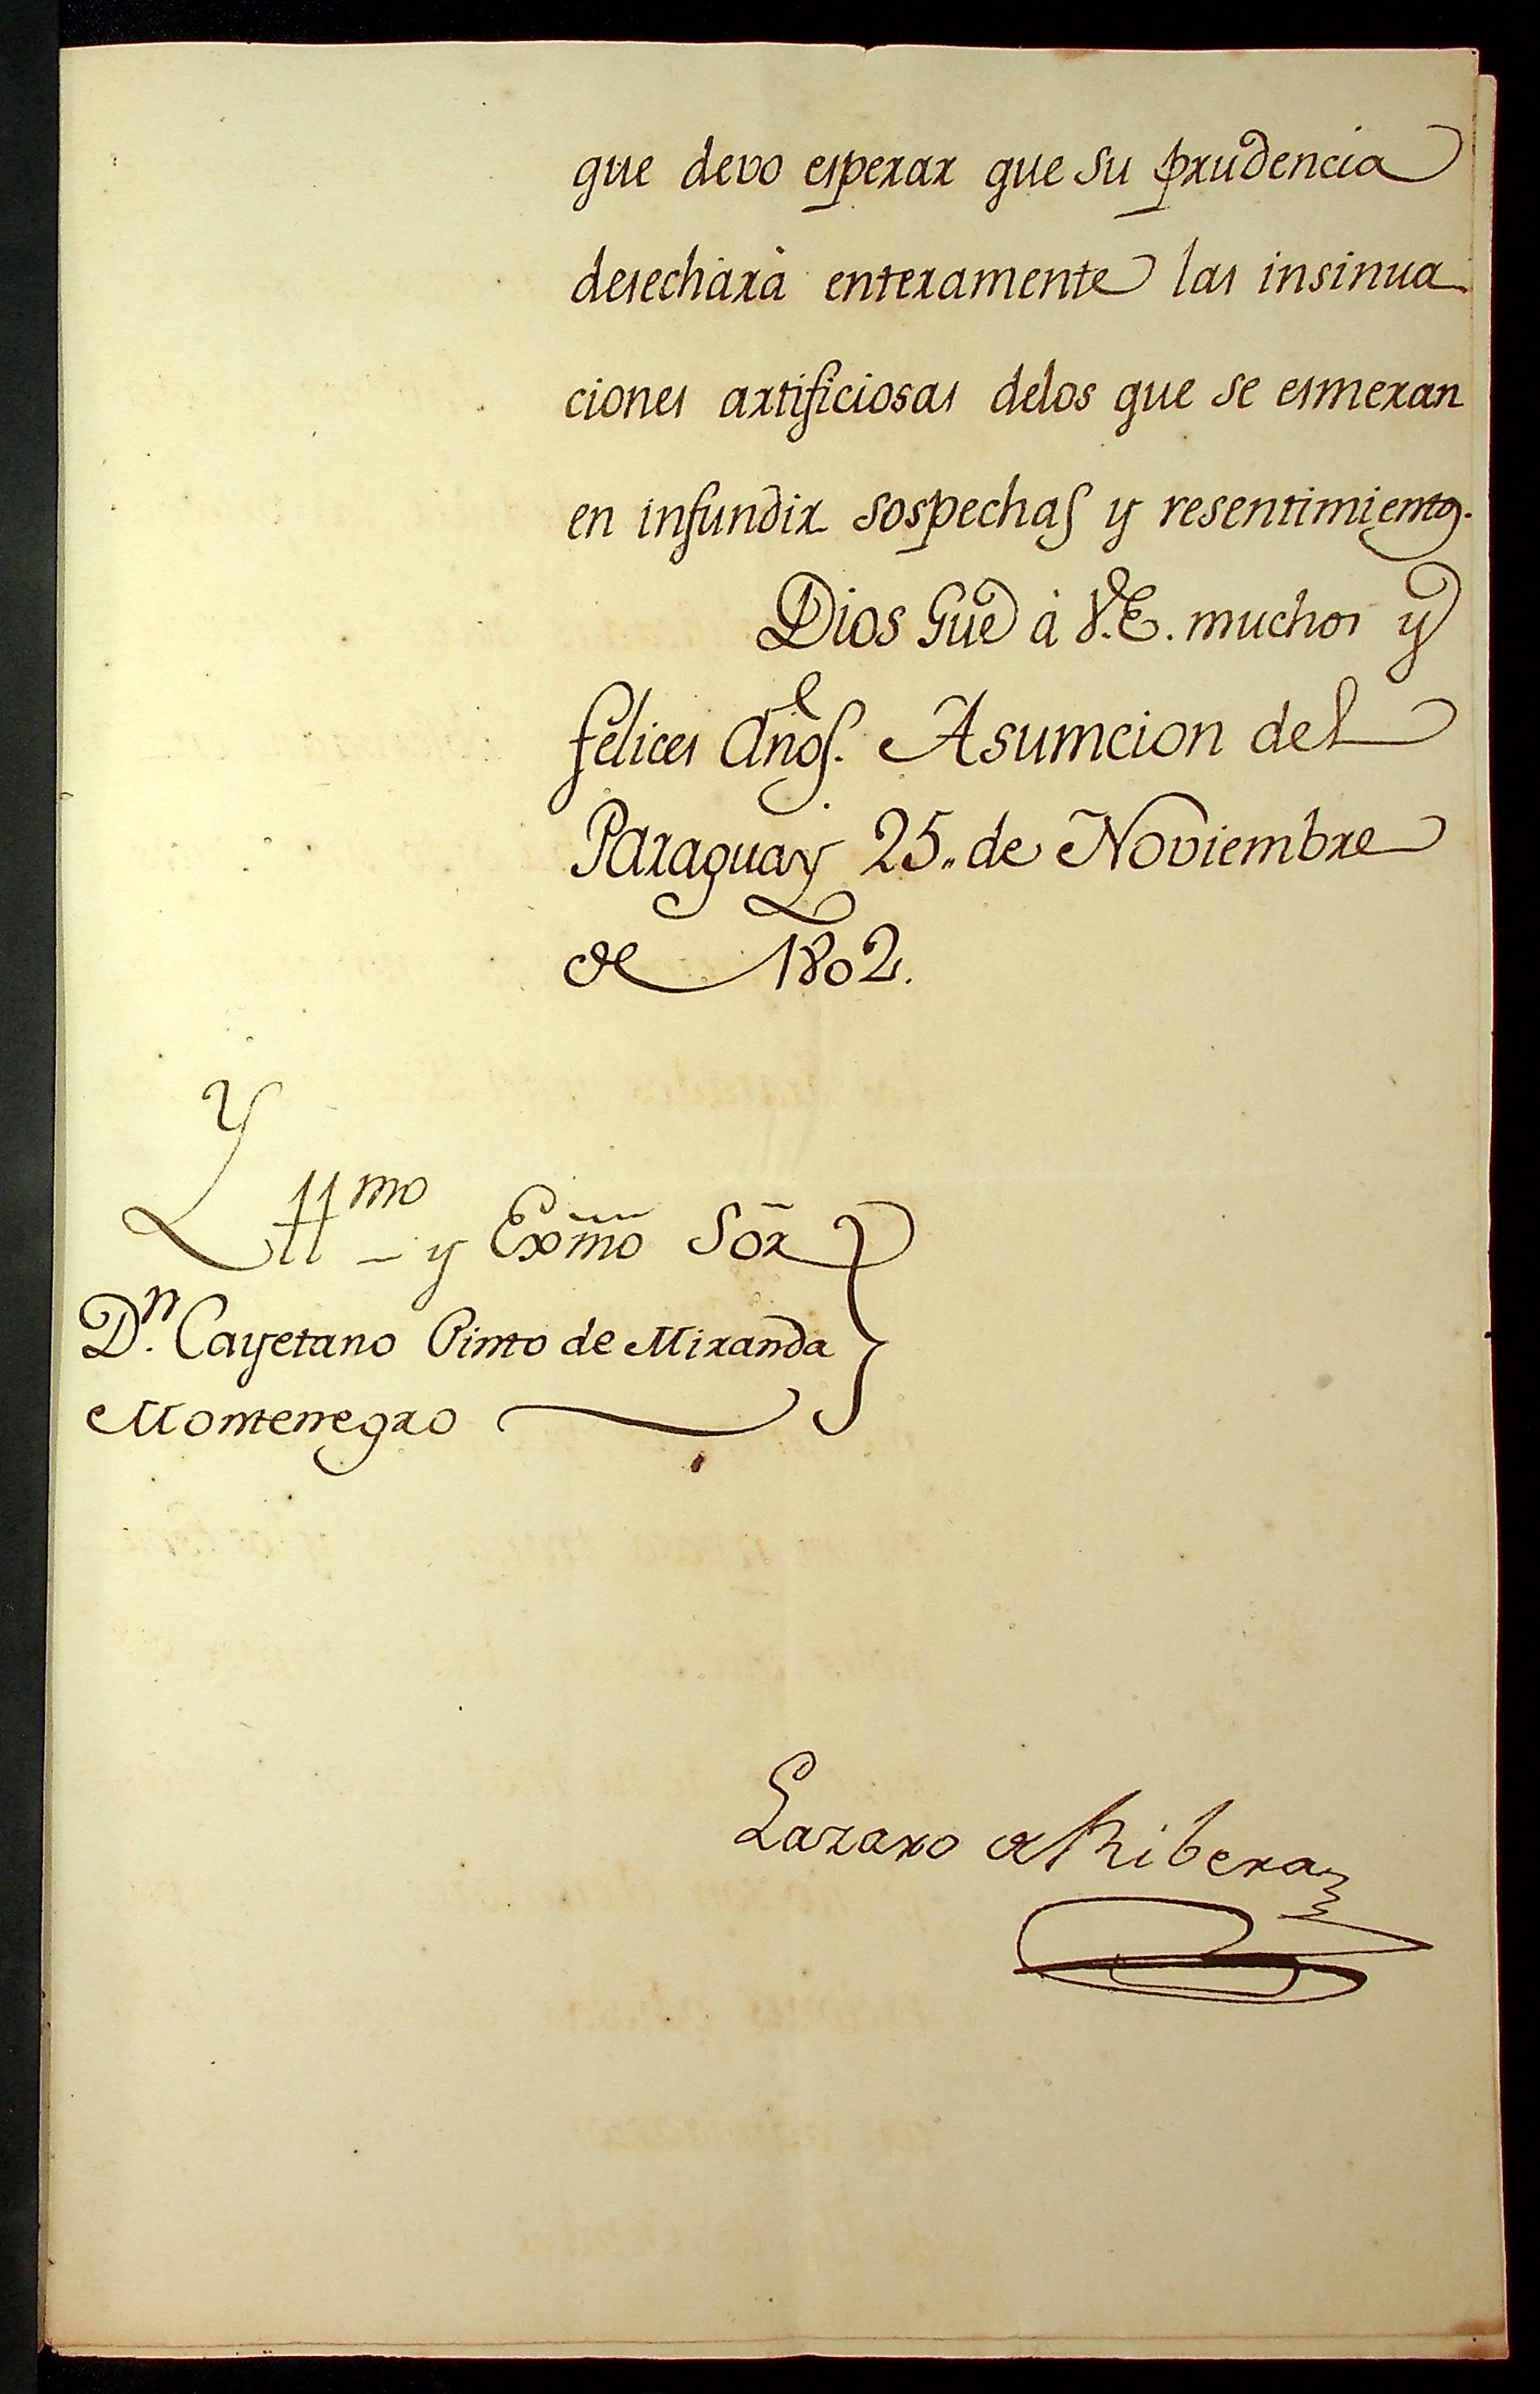 que devo esperar que su prudencia
desechàrà enteramente las insinua
ciones artificiosas delos que se esmeran
en infundir sospechas y resentimientos.
Dios Gũe à V.E. muchos y
felices Años. Asumcion del
Paraguay 25,, de Noviembre
de 1802.
Yllmo y Exm̃o Sõr
Dn. Cayetano Pinto de Miranda
Montenegro
Lazaro de Ribera